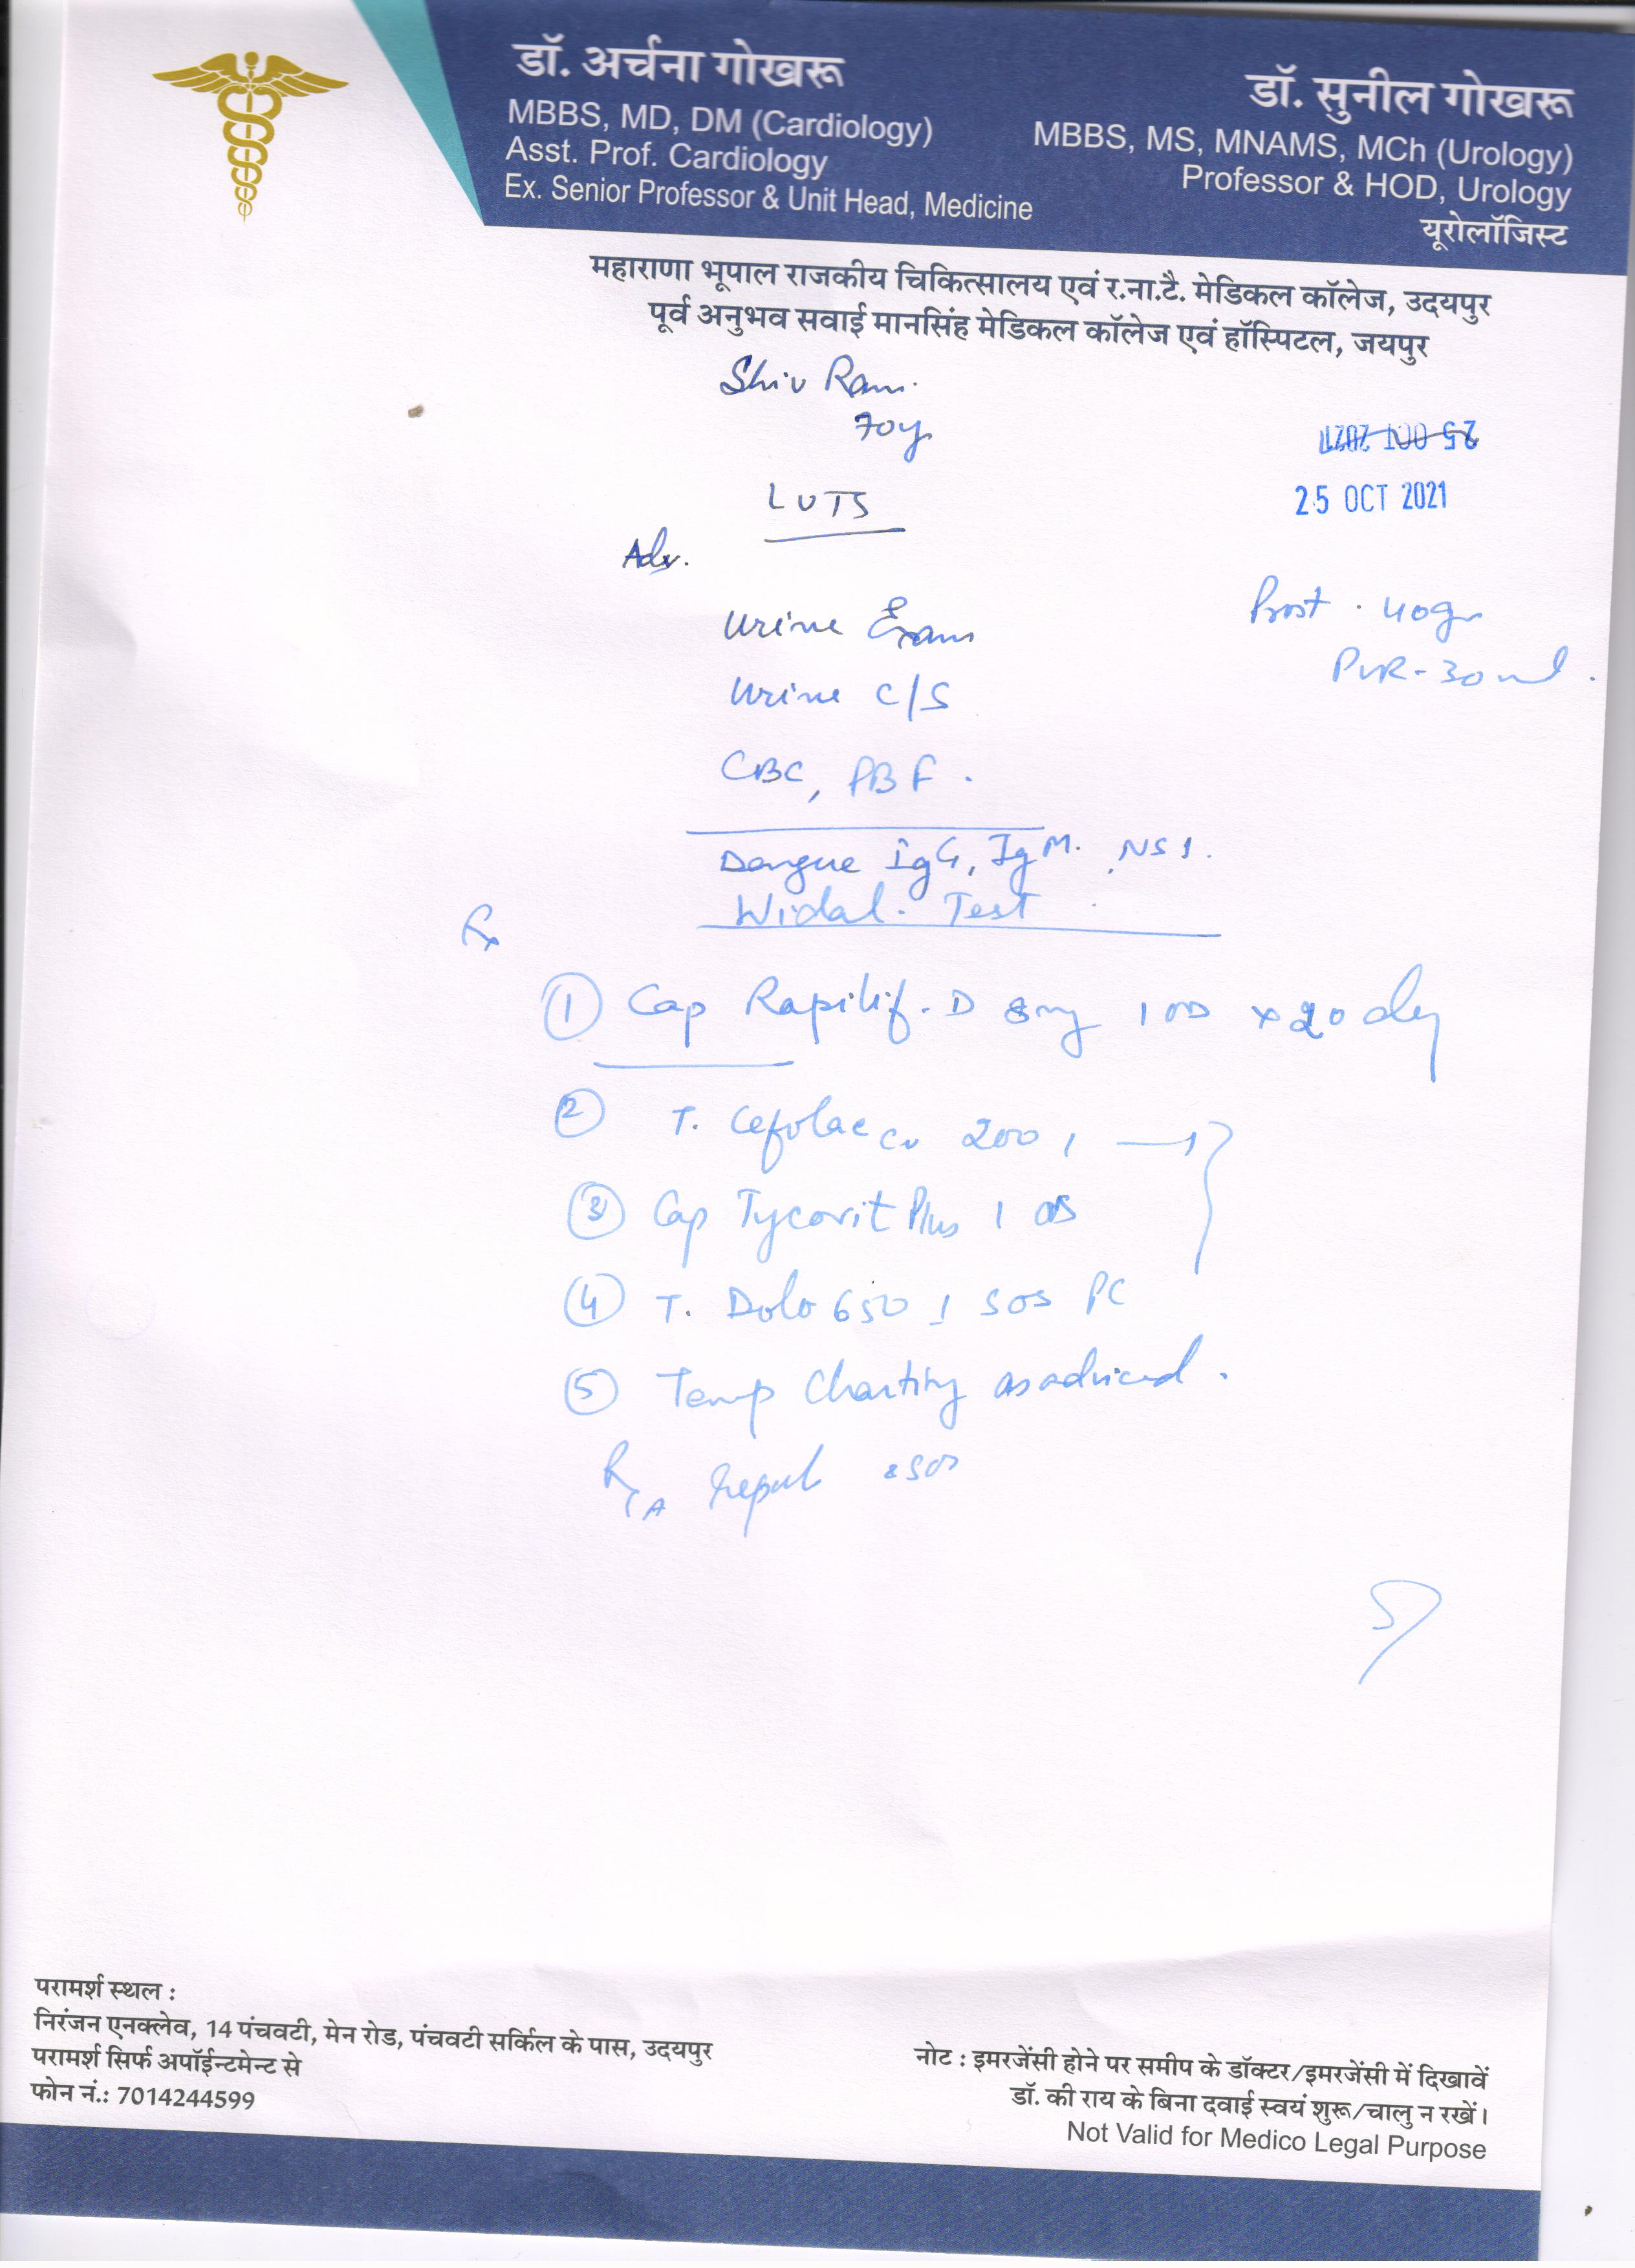 डॉ. अर्चना गोखरू
MBBS, MD, DM (Cardiology)
Asst. Prof. Cardiology
Ex. Senior Professor & Unit Head, Medicine
डॉ. सुनील गोखरू
MBBS, MS, MNAMS, MCh (Urology)
Professor & HOD, Urology
यूरोलॉजिस्ट
महाराणा भूपाल राजकीय चिकित्सालय एवं र.ना.टै. मेडिकल कॉलेज, उदयपुर
पूर्व अनुभव सवाई मानसिंह मेडिकल कॉलेज एवं हॉस्पिटल, जयपुर
Shiv Ram.
70y
25 OCT 2021
25 OCT 2021
LUTS
Adv.
Urine Exam
Prost . 40gm
PVR-30ml.
Urine C/S
CBC, PBF.
Dengue IgG, IgM. NS1.
Widal. Test
Rx
① Cap Rapilif-D 8mg 1 OD x 20 day
② T. Cefolac CV 200 1 — 1
③ Cap Tycovit Plus 1 OD
④ T. Dolo 650 1 SOS PC
⑤ Temp Charting as adviced.
SOS
परामर्श स्थल :
निरंजन एनक्लेव, 14 पंचवटी, मेन रोड, पंचवटी सर्किल के पास, उदयपुर
परामर्श सिर्फ अपॉईन्टमेन्ट से
फोन नं.: 7014244599
नोट : इमरजेंसी होने पर समीप के डॉक्टर/इमरजेंसी में दिखावें
डॉ. की राय के बिना दवाई स्वयं शुरू/चालु न रखें।
Not Valid for Medico Legal Purpose